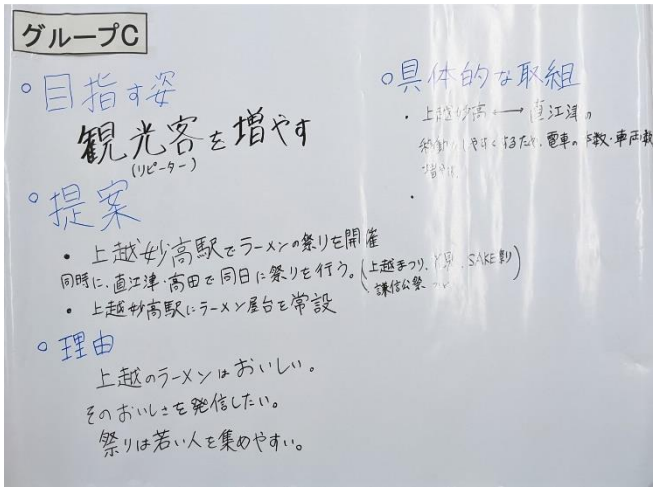 グループC
○目指す姿
観光客を増やす
(リピーター)
○提案
・上越妙高駅でラーメンの祭りを開催
同時に、直江津・高田で同日に祭りを行う。(上越まつり、SAKE祭り
謙信公祭
・上越妙高駅にラーメン屋台を常設
○理由
上越のラーメンはおいしい。
そのおいしさを発信したい。
祭りは若い人を集めやすい。
○具体的な取組
・上越妙高⟷直江津の
しやすくするため、電車の本数・車両数
・